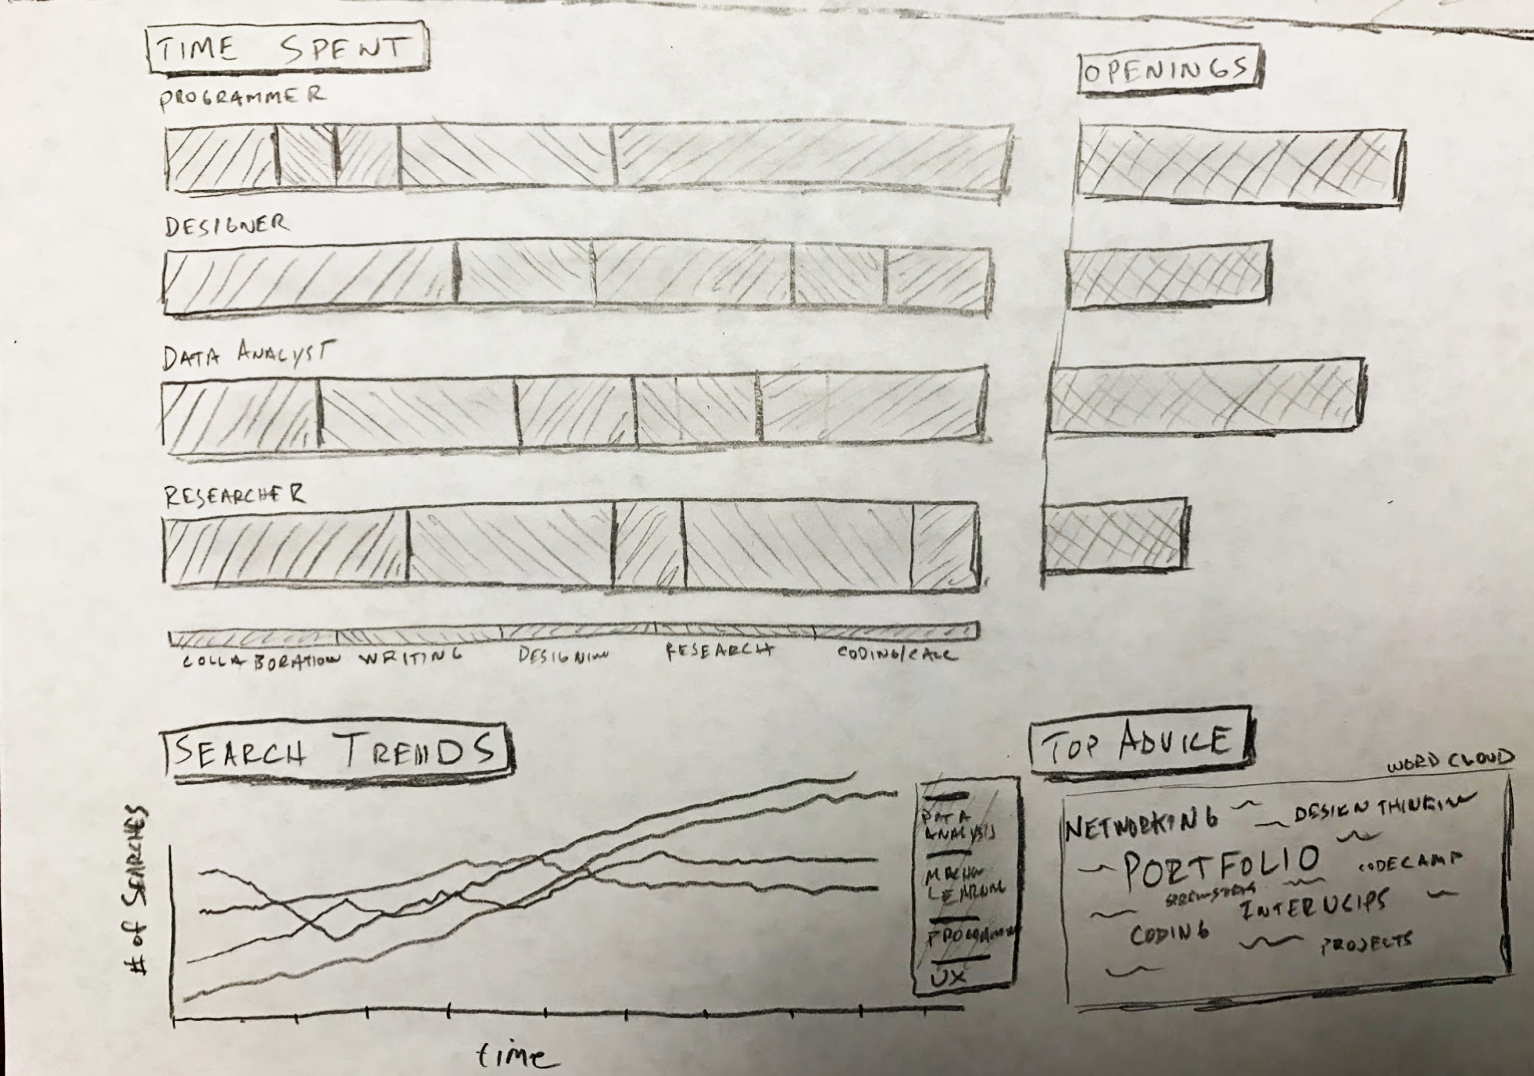 TIME SPENT
OPENINGS
PROGRAMMER
DESIGNER
DATA ANALYST
RESEARCHER
COLLABORATION WRITING DESIGNIN RESEARCH CODING/CALC
SEARCH TRENDS
# of SEARCHES
time
DATA
ANALYSIS
MACHIN
LEARNING
PROGRAMMIN
UX
TOP ADVICE
WORD CLOUD
NETWORKING DESIGN THINKIN
PORTFOLIO CODECAMP
INTERNCIPS
CODING PROJECTS